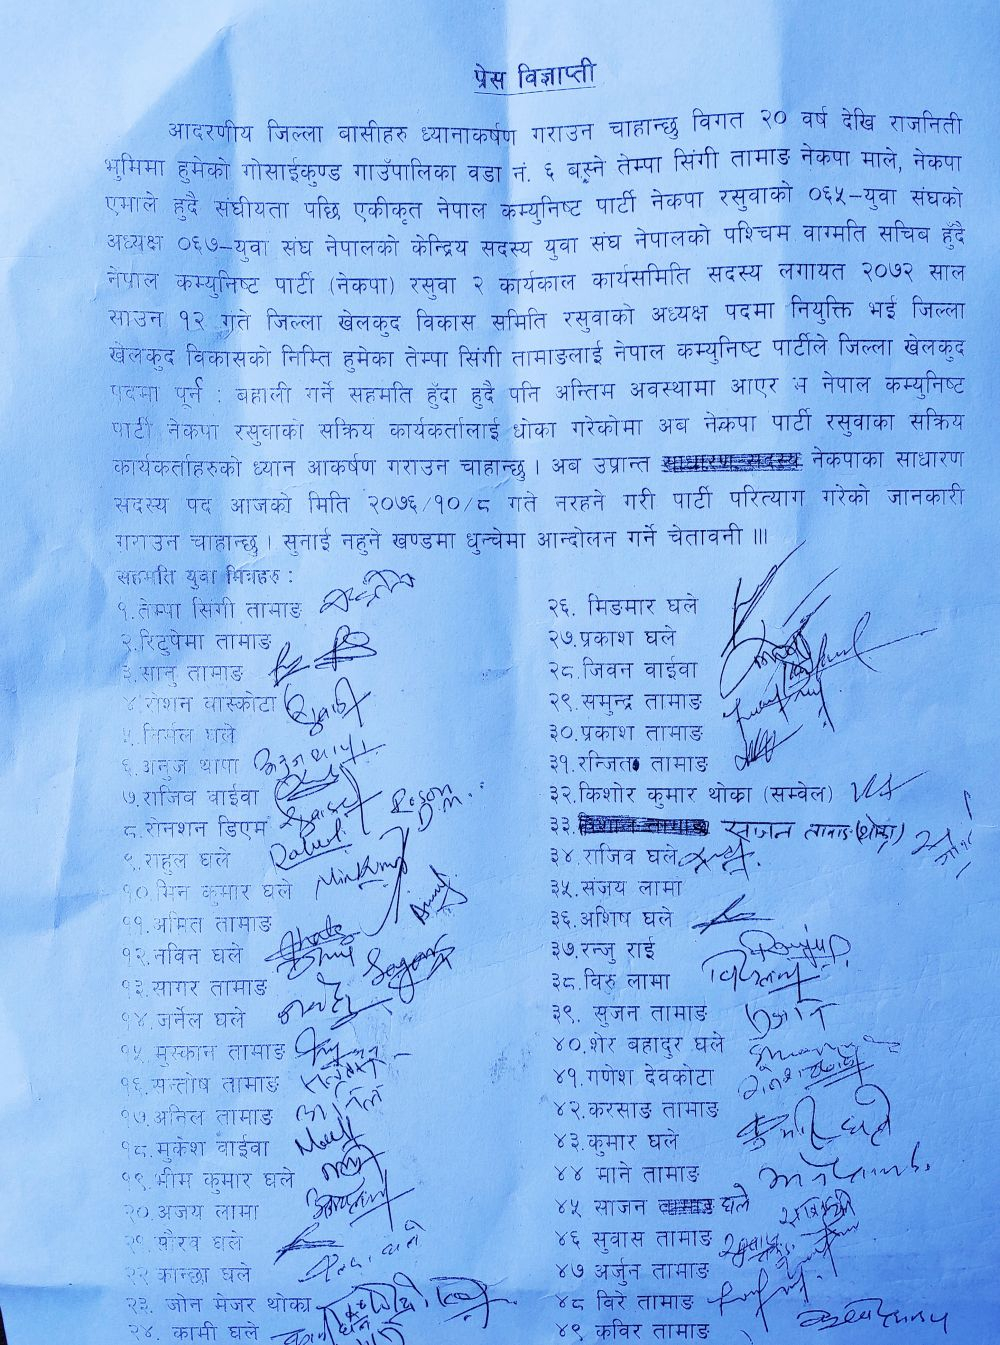 प्रेस विज्ञाप्ती
आदरणीय जिल्ला वासीहरु ध्यानाकर्षण गराउन चाहान्छु विगत २० वर्ष देखि राजनिती
भुमिमा हुमेको गोसाईकुण्ड गाउँपालिका वडा नं. ६ बस्ने तेम्पा सिंगी तामाङ नेकपा माले, नेकपा
एमाले हुदै संघीयता पछि एकीकृत नेपाल कम्युनिष्ट पार्टी नेकपा रसुवाको ०६५–युवा संघको
अध्यक्ष ०६७–युवा संघ नेपालको केन्द्रिय सदस्य युवा संघ नेपालको पश्चिम वाग्मति सचिब हुँदै
नेपाल कम्युनिष्ट पार्टी (नेकपा) रसुवा २ कार्यकाल कार्यसमिति सदस्य लगायत २०७२ साल
साउन १२ गते जिल्ला खेलकुद विकास समिति रसुवाको अध्यक्ष पदमा नियुक्ति भई जिल्ला
खेलकुद विकासको निम्ति हुमेका तेम्पा सिंगी तामाङलाई नेपाल कम्युनिष्ट पार्टीले जिल्ला खेलकुद
पदमा पूर्न : बहाली गर्ने सहमति हुँदा हुदै पनि अन्तिम अवस्थामा आएर म नेपाल कम्युनिष्ट
पार्टी नेकपा रसुवाको सक्रिय कार्यकर्तालाई धोका गरेकोमा अब नेकपा पार्टी रसुवाका सक्रिय
कार्यकर्ताहरुको ध्यान आकर्षण गराउन चाहान्छु । अब उप्रान्त साधारण सदस्य नेकपाका साधारण
सदस्य पद आजको मिति २०७६/१०/८ गते नरहने गरी पार्टी परित्याग गरेको जानकारी
गराउन चाहान्छु । सुनाई नहुने खण्डमा धुन्चेमा आन्दोलन गर्ने चेतावनी ।।।
सहमति युवा मित्रहरु :
१.तेम्पा सिंगी तामाङ
२.रिटुपेमा तामाङ
३.सानु तामाङ
४.रोशन वास्कोटा
५.निर्मल घले
६.अनुज थापा अनुज थापा
७.राजिव वाईवा
८.रोनशन डिएम Roson D.M.
९.राहुल घले Rahul
१०.मिन कुमार घले Minkumar
११.अमित तामाङ
१२.नविन घले
१३.सागर तामाङ Sagar
१४.जर्नेल घले
१५.मुस्कान तामाङ
१६.सन्तोष तामाङ
१७.अनिल तामाङ
१८.मुकेश वाईवा
१९.भीम कुमार घले
२०.अजय लामा
२१.पौरव घले
२२.कान्छा घले
२३. जोन मेजर थोका
२४. कामी घले
२६. मिङमार घले
२७.प्रकाश घले
२८.जिवन वाईवा
२९.समुन्द्र तामाङ
३०.प्रकाश तामाङ
३१.रन्जिता तामाङ
३२.किशोर कुमार थोका (सम्वेल)
३३. सृजन तामाङ (थोका)
३४.राजिव घले
३५.संजय लामा
३६.अशिष घले
३७.रन्जु राई Ranju
३८.विरु लामा
३९. सुजन तामाङ
४०.शेर बहादुर घले
४१.गणेश देवकोटा
४२.करसाङ तामाङ
४३.कुमार घले कुमार घले
४४ माने तामाङ
४५ साजन तामाङ घले
४६ सुवास तामाङ
४७ अर्जुन तामाङ
४८ विरे तामाङ
४९ कविर तामाङ